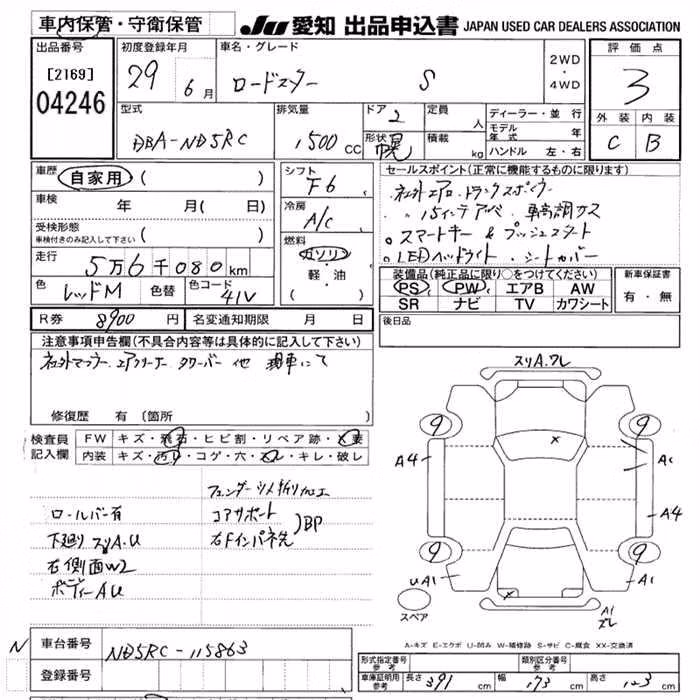 車内保管・守衛保管
JU 愛知 出品申込書 JAPAN USED CAR DEALERS ASSOCIATION
出品番号
[2169]
04246
初度登録年月
29 6月
車名・グレード
ロードスター S
2WD
・
4WD
評価点
3
外装 内装
C B
型式
DBA-ND5RC
排気量
1500 CC
ドア 2
形状 幌
定員 人
積載 kg
ディーラー・並行
モデル年式 年
ハンドル 左・右
車歴 自家用 ( )
車検 年 月( 日)
受検形態
車検付きのみ記入して下さい ( )
走行 5万6千080km
色 レッドM 色替 色コード 41V
シフト
F6
冷房
A/C
燃料
ガソリン
軽・油
( )
セールスポイント(正常に機能するものに限ります)
社外エアロ・トランクスポイラー
〃 15インチアルミ 車高調サス
スマートキー & プッシュスタート
LEDヘッドライト・シートカバー
装備品(純正品に限り○をつけてください)
PS PW エアB AW
SR ナビ TV カワシート
新車保証書
有・無
R券 8900円 名変通知期限 月 日
後日品
注意事項申告欄(不具合内容等は具体的に記入して下さい)
社外マフラー エアクリーナー タワーバー 他 現車にて
修復歴 有(箇所
検査員記入欄
FW キズ・飛石・ヒビ割・リペア跡・X要
内装 キズ・汚れ・コゲ・穴・スレ・キレ・破レ
フェンダーツメ折り加工
ロールバー有
コアサポート
右Fインパネ先
)BP
下廻りスリA.U
右側面W2
ボディーAU
スリA.スレ
9 9
A4 A1
A4
9 9
UA1 A1
スペア
A1
スレ
A-キズ E-エクボ U-凹み W-補修跡 S-サビ C-腐食 XX-交換済
N
車台番号 ND5RC-115863
登録番号
形式指定番号 参考
類別区分番号 参考
車庫証明用 参考 長さ 391 cm 幅 173 cm 高さ 123 cm